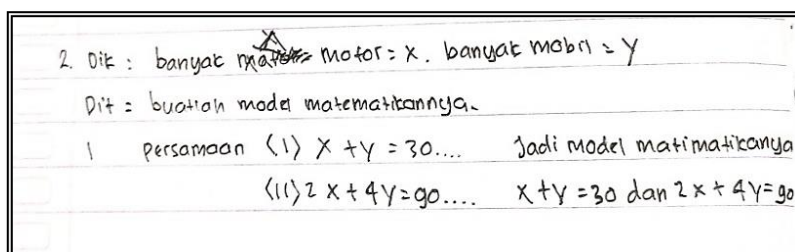 2. Dik : banyak motor = x. banyak mobil = y
Dit = buatlah model matematikannya.
1 persamaan (I) x + y = 30.... Jadi model matimatikanya
(II) 2x + 4y = 90.... x + y = 30 dan 2x + 4y = 90